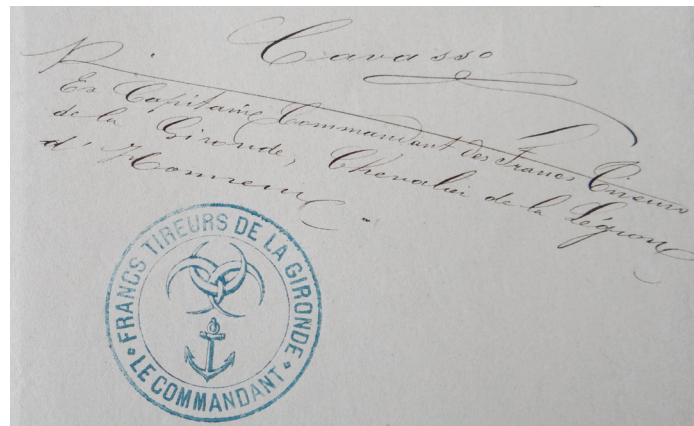 Cavasso
Ex Capitaine Commandant des Francs Tireurs
de la Gironde, Chevalier de la Légion
d'Honneur
FRANCS TIREURS DE LA GIRONDE
LE COMMANDANT